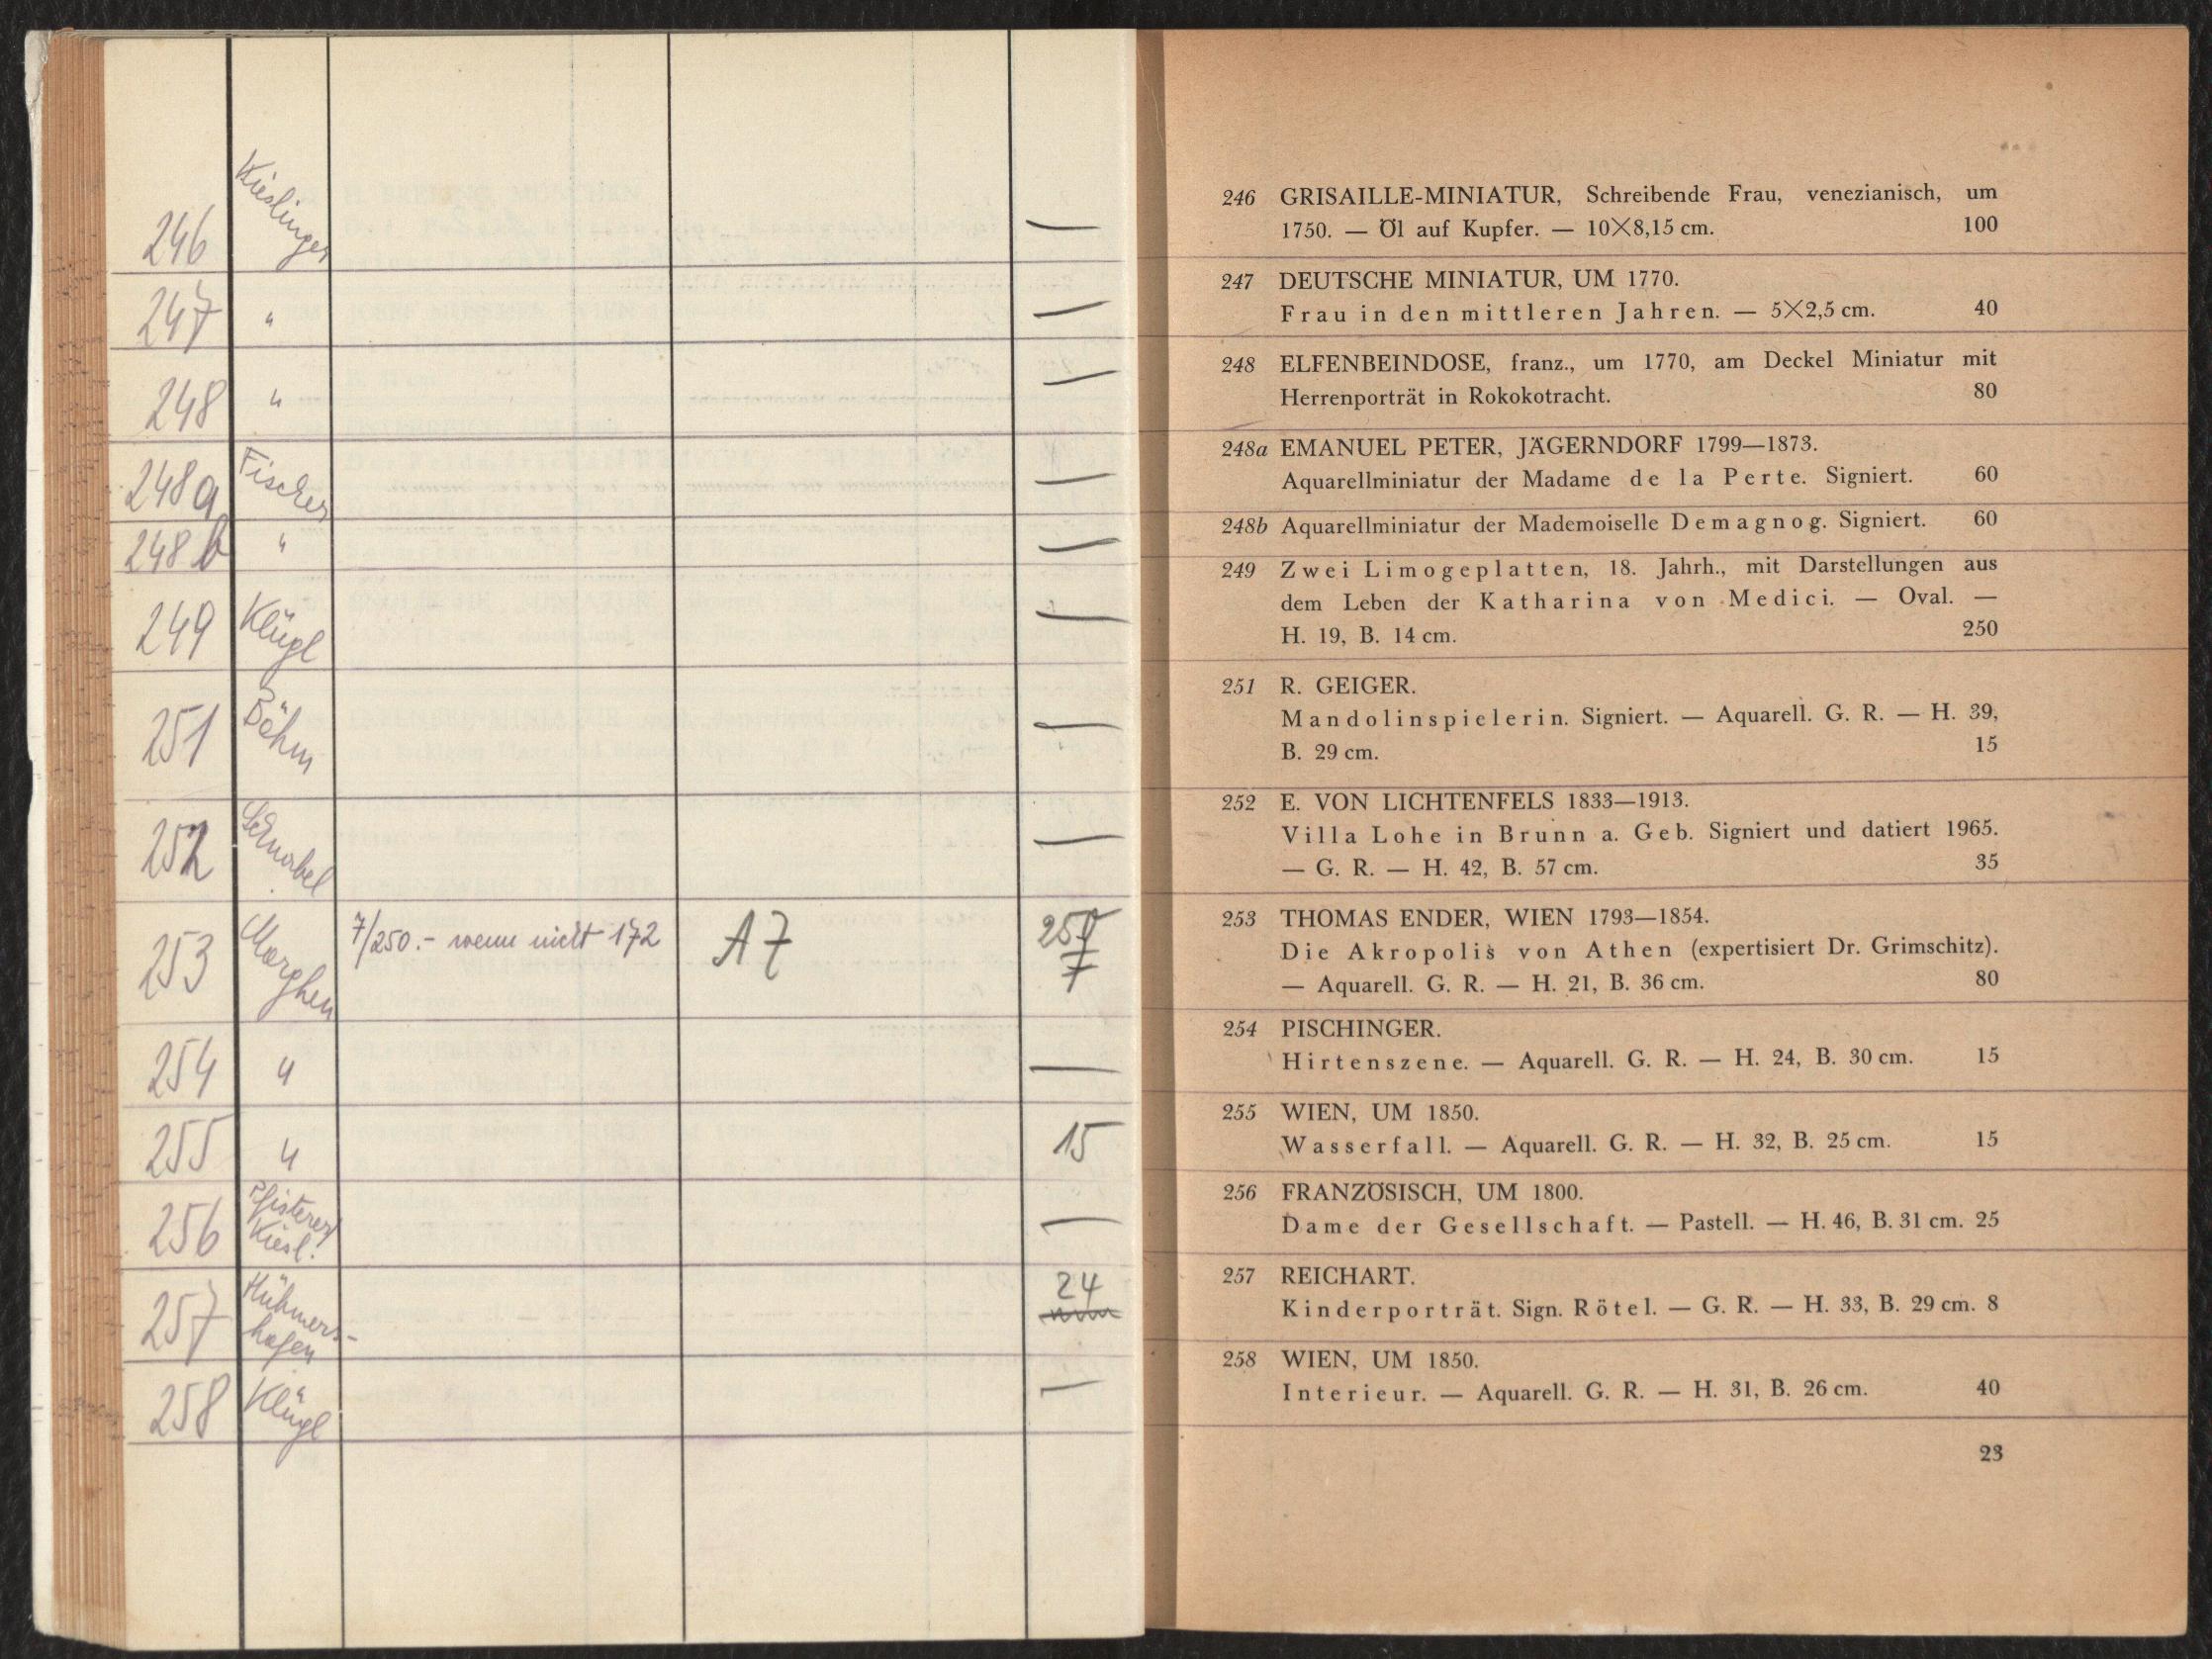 246 Kieslinger —
247 " —
248 " —
248a Fischer —
248b " —
249 Klügl —
251 Böhm —
252 —
253 Morghen 7/250.- wenn nicht 172 A7 250
7
254 " —
255 " 15
256 Pfisterer —
Kiesl.
257 Hühners- 24
hafen
258 Klügl —
246 GRISAILLE-MINIATUR, Schreibende Frau, venezianisch, um
1750. — Öl auf Kupfer. — 10×8,15 cm. 100
247 DEUTSCHE MINIATUR, UM 1770.
Frau in den mittleren Jahren. — 5×2,5 cm. 40
248 ELFENBEINDOSE, franz., um 1770, am Deckel Miniatur mit
Herrenporträt in Rokokotracht. 80
248a EMANUEL PETER, JÄGERNDORF 1799—1873.
Aquarellminiatur der Madame de la Perte. Signiert. 60
248b Aquarellminiatur der Mademoiselle Demagnog. Signiert. 60
249 Zwei Limogeplatten, 18. Jahrh., mit Darstellungen aus
dem Leben der Katharina von Medici. — Oval. —
H. 19, B. 14 cm. 250
251 R. GEIGER.
Mandolinspielerin. Signiert. — Aquarell. G. R. — H. 39,
B. 29 cm. 15
252 E. VON LICHTENFELS 1833—1913.
Villa Lohe in Brunn a. Geb. Signiert und datiert 1965.
— G. R. — H. 42, B. 57 cm. 35
253 THOMAS ENDER, WIEN 1793—1854.
Die Akropolis von Athen (expertisiert Dr. Grimschitz).
— Aquarell. G. R. — H. 21, B. 36 cm. 80
254 PISCHINGER.
Hirtenszene. — Aquarell. G. R. — H. 24, B. 30 cm. 15
255 WIEN, UM 1850.
Wasserfall. — Aquarell. G. R. — H. 32, B. 25 cm. 15
256 FRANZÖSISCH, UM 1800.
Dame der Gesellschaft. — Pastell. — H. 46, B. 31 cm. 25
257 REICHART.
Kinderporträt. Sign. Rötel. — G. R. — H. 33, B. 29 cm. 8
258 WIEN, UM 1850.
Interieur. — Aquarell. G. R. — H. 31, B. 26 cm. 40
23